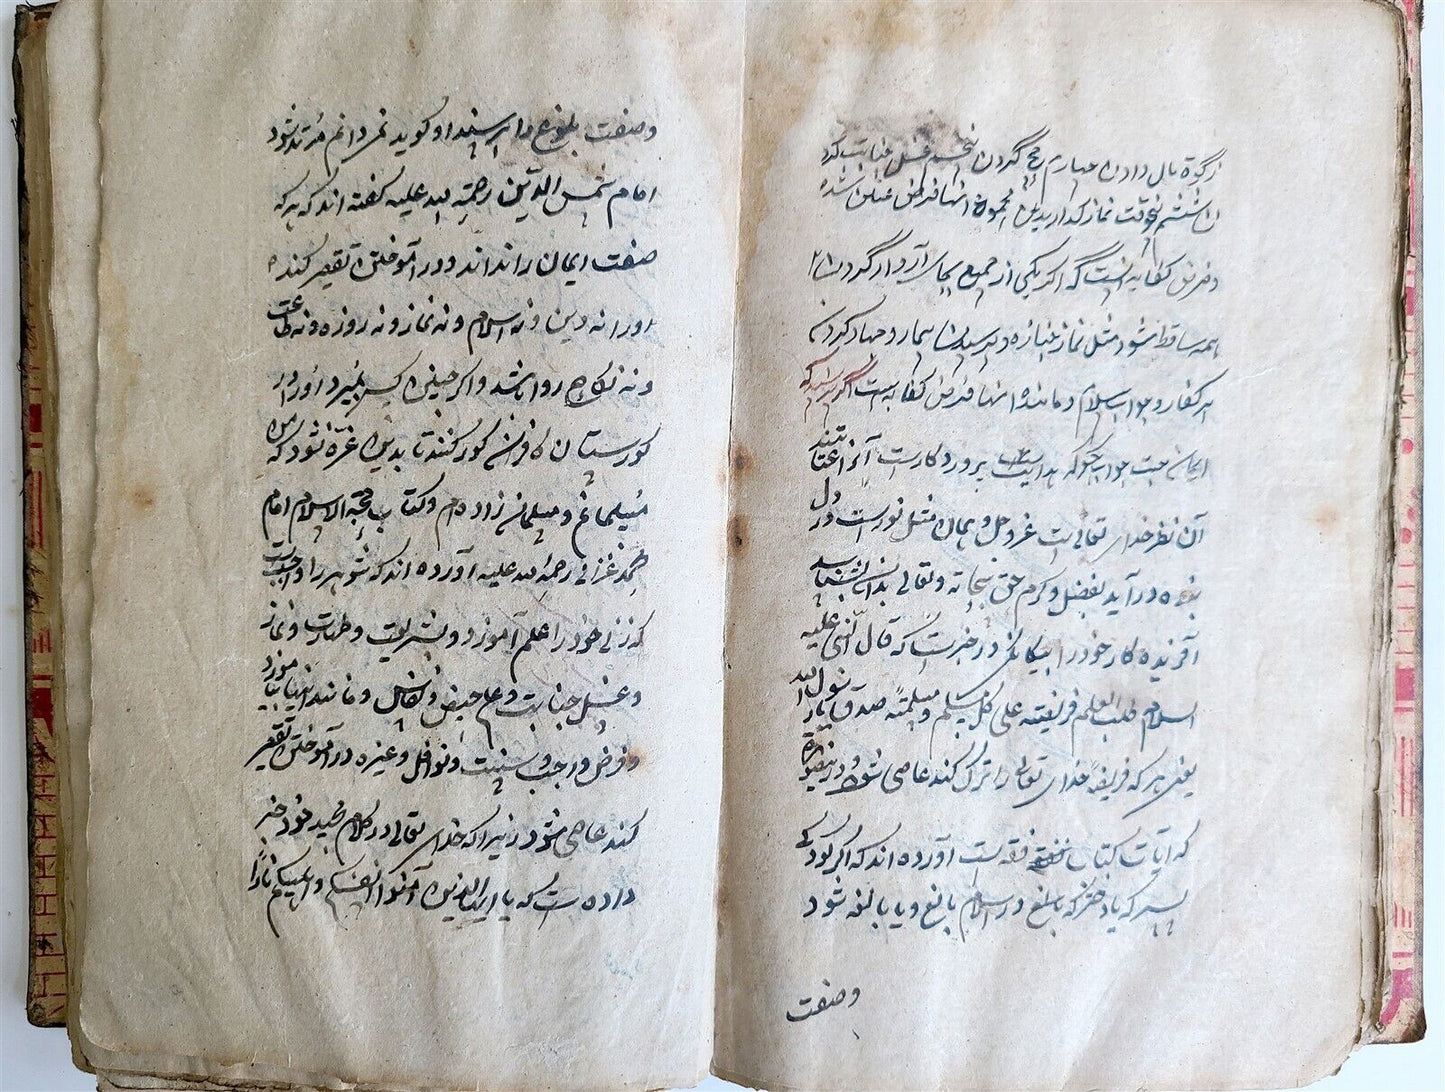 زکوة مال دادن چهارم حج گردن پنجم غسل جنابت کرد
ششم نوقت نماز گذاریدن مجموع اینها فرض عین شد
و فرض کفایه انست که اگر یکی از جمیع بجای آرد از گردن
همه ساقط شود مثل نماز جنازه و پرسیدن بیمار و جهاد کردن
بر کفار و جواب سلام و مانند اینها فرض کفایه است اگر پرسند که
ایمان چیست جواب بگو که هدایت پروردگارست
آن نظر خدای تعالی است عزوجل و ایمان مثل نورست در دل
بنده درآید بفضل و کرم حق سبحانه و تعالی بدان بشناسد
آفریننده کار خود را بیگانگی در خبرست که قال النبی علیه
السلام طلب العلم فریضة علی کل مسلم و مسلمة صدق یا رسول الله
یعنی هر که فریضه خدای تعالی را ترک کند عاصی شود و در
که آیات کتاب فقه است آورده اند که اگر کودکی
پسر که یا دختر که بالغ در اسلام بالغ و یا بالغه شود
وصفت
وصفت بلوغ را پرسند او گوید نمیدانم مرتد شود
امام شمس الدین رحمة الله علیه گفته اند که هر که
صفت ایمان را نداند و در آموختن تقصیر کند
او را نه دین و نه اسلام و نه نماز و نه روزه و نه طاعت
و نه نکاح روا باشد و اگر چنین کس بمیرد او را در
گورستان کافران گور کنند تا بدین غره نشود که من
مسلمانم و مسلمان زاده ام و کتاب حجة الاسلام امام
محمد غزالی رحمة الله علیه آورده اند که شوهر را واجب است
که زن خود را علم آموزد و شریعت و طهارت و نماز
و غسل جنابت و علم حیض و نفاس و مانند اینها بیاموزد
و فرض و واجب و سنت و نوافل و غیره در آموختن تقصیر
کند عاصی شود زیرا که خدای تعالی در کلام مجید خود خبر
داده است که یا ایها الذین آمنوا قوا انفسکم و اهلیکم نارا